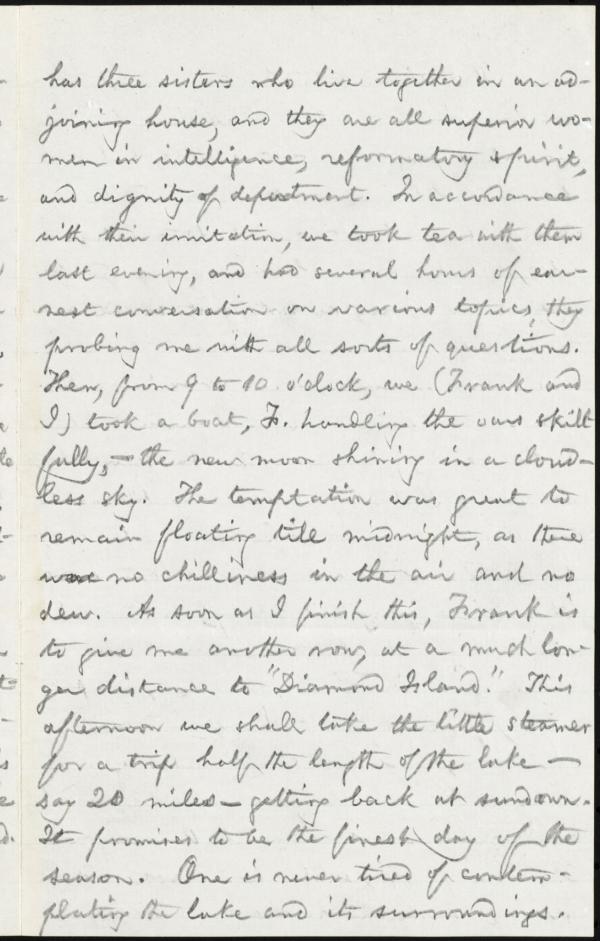 has three sisters who live together in an ad-
joining house, and they are all superior wo-
men in intelligence, reformatory spirit,
and dignity of deportment. In accordance
with their invitation, we took tea with them
last evening, and had several hours of ear-
nest conversation on various topics, they
probing me with all sorts of questions.
Then, from 9 to 10 o'clock, we (Frank and
I) took a boat, F. handling the oars skill
fully,—the new moon shining in a cloud-
less sky. The temptation was great to
remain floating till midnight, as there
was no chilliness in the air and no
dew. As soon as I finish this, Frank is
to give me another row, at a much lon-
ger distance to "Diamond Island." This
afternoon we shall take the little steamer
for a trip half the length of the lake —
say 20 miles — getting back at sundown.
It promises to be the finest day of the
season. One is never tired of contem-
plating the lake and its surroundings.